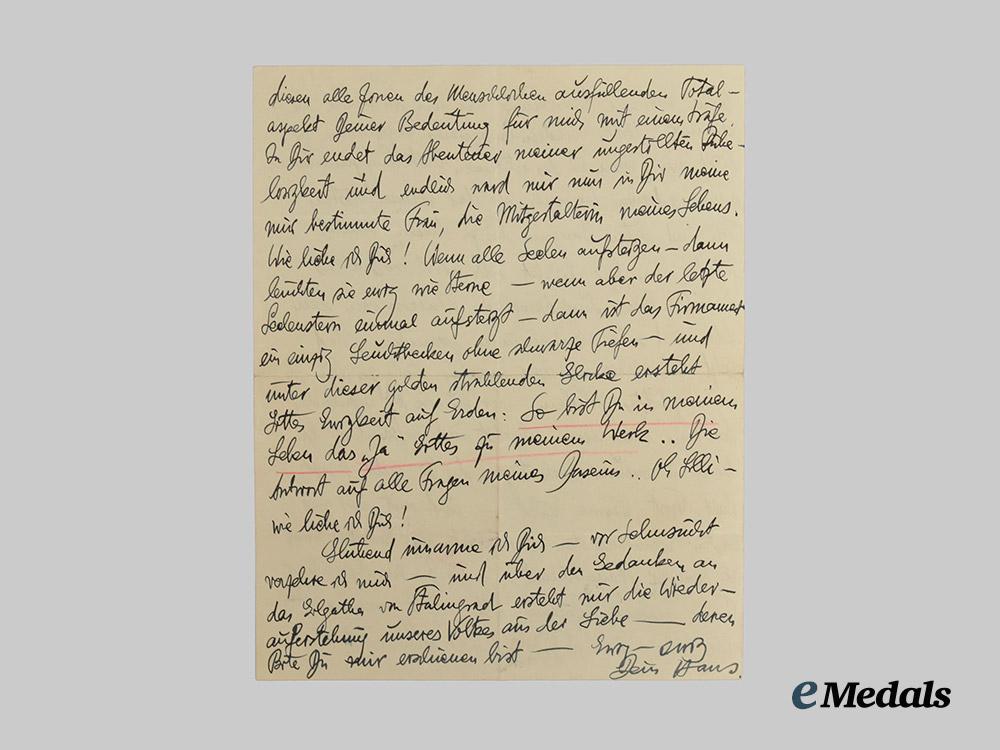 diesen alle Zonen des Menschlichen ausfüllenden Total-
aspekt Deiner Bedeutung für mich mit einem
In Dir endet das Abenteuer meiner ungestillten Ruhe-
losigkeit und endlich ward mir nun in Dir meine
mir bestimmte Frau, die Mitgestalterin meines Lebens.
Wie liebe ich Dich! Wenn alle Seelen aufsteigen – dann
leuchten sie ewig wie Sterne – wenn aber der letzte
Seelenstern einmal aufsteigt – dann ist das Firmament
ein einzig Leuchtbecken ohne schwarze Tiefen – und
unter dieser golden strahlenden Glocke ersteht
Gottes Ewigkeit auf Erden: So bist Du in meinem
Leben das „Ja" Gottes zu meinem Werk.. Die
Antwort auf alle Fragen meines Daseins.. Oh Lilli –
wie liebe ich Dich!
Glühend umarme ich Dich – vor Sehnsucht
verzehre ich mich – und über den Gedanken an
das Golgatha von Stalingrad ersteht mir die Wieder-
auferstehung unseres Volkes aus der Liebe – deren
Bote Du mir erschienen bist – Ewig – ewig
Dein Hans.
eMedals